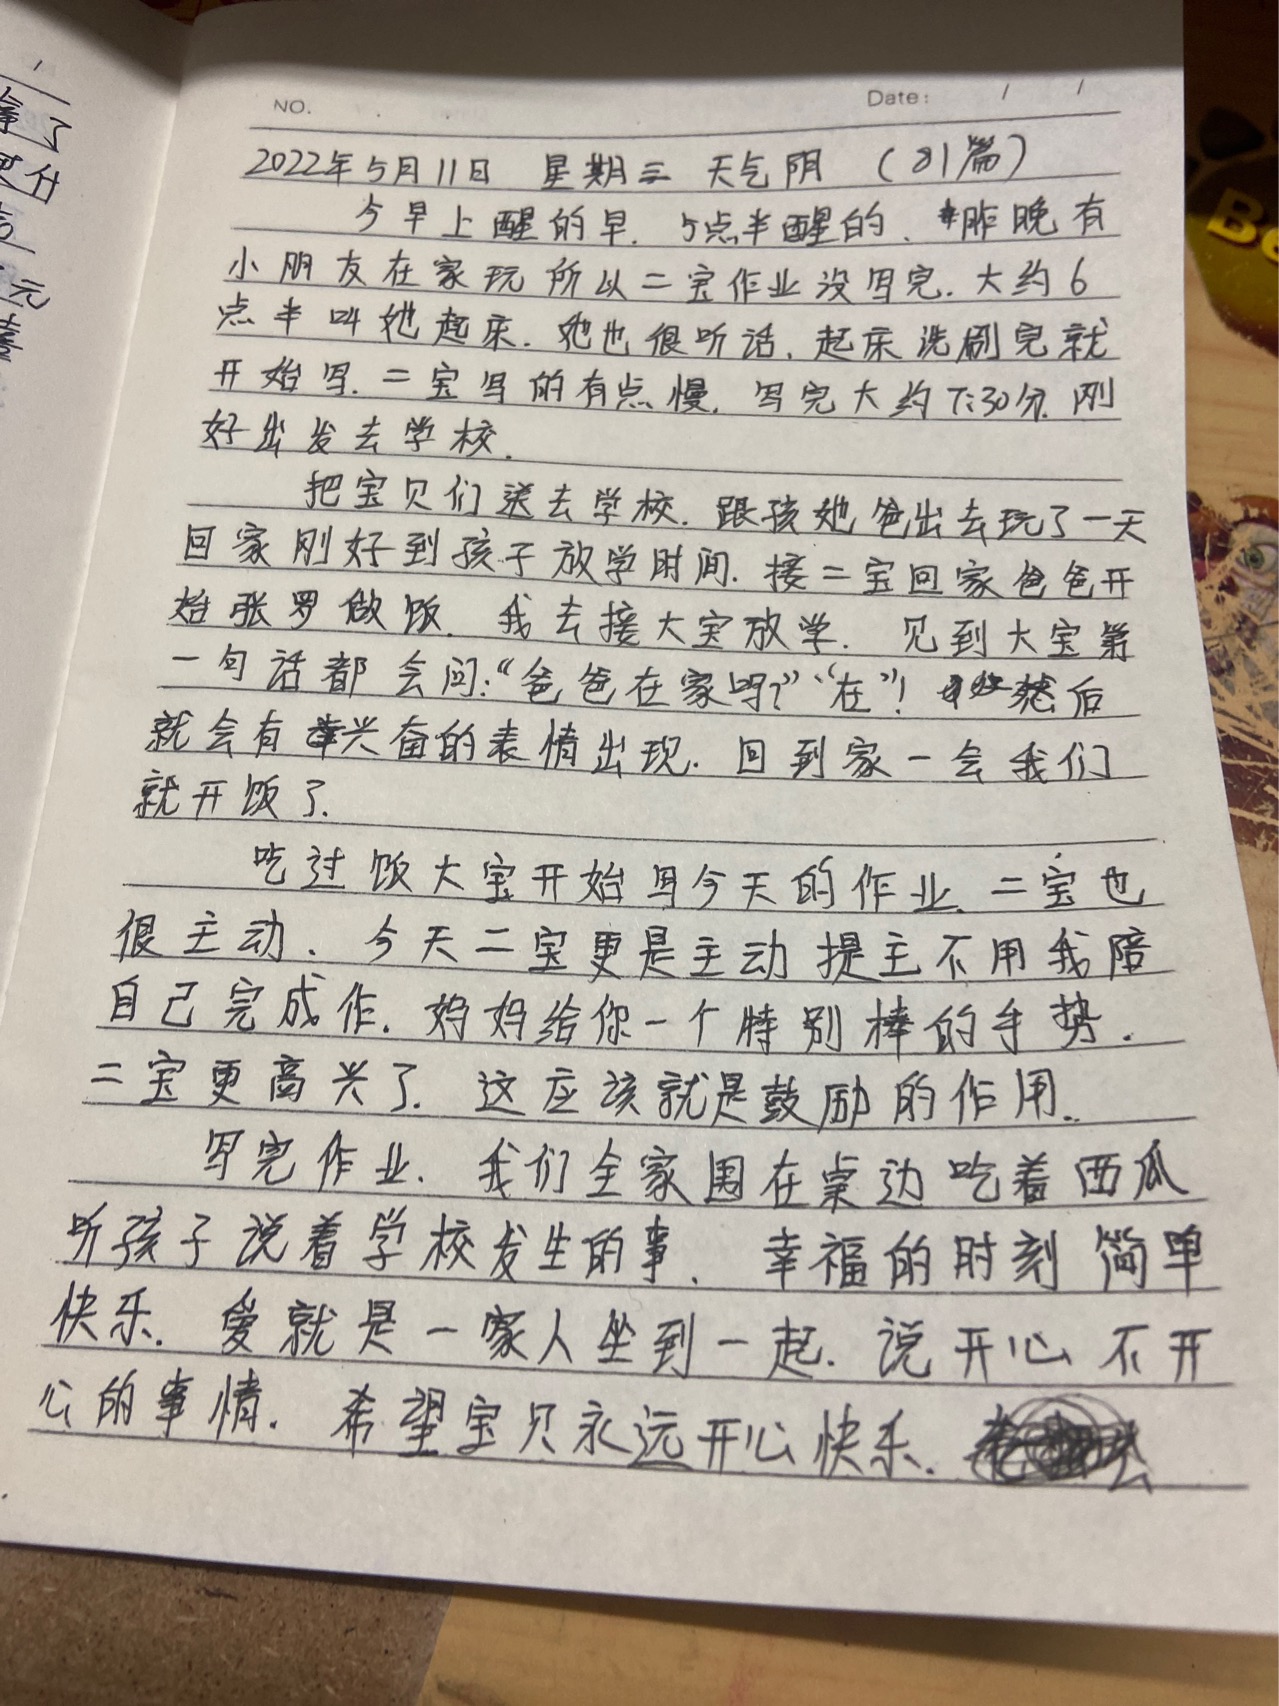 拿了
元
NO.
Date: / /
2022年5月11日 星期三 天气阴 (81篇)
今早上醒的早. 5点半醒的、昨晚有
小朋友在家玩所以二宝作业没写完. 大约6
点半叫她起床. 她也很听话. 起床洗刷完就
开始写. 二宝写的有点慢. 写完大约7:30分. 刚
好出发去学校.
把宝贝们送去学校. 跟孩她爸出去玩了一天
回家刚好到孩子放学时间. 接二宝回家爸爸开
始张罗做饭. 我去接大宝放学. 见到大宝第
一句话都会问:“爸爸在家吗?”“在”! 然后
就会有兴奋的表情出现. 回到家一会我们
就开饭了.
吃过饭大宝开始写今天的作业. 二宝也
很主动、今天二宝更是主动提主不用我陪
自己完成作. 妈妈给你一个特别棒的手势.
二宝更高兴了. 这应该就是鼓励的作用.
写完作业. 我们全家围在桌边吃着西瓜
听孩子说着学校发生的事. 幸福的时刻简单
快乐. 爱就是一家人坐到一起. 说开心不开
心的事情. 希望宝贝永远开心快乐.
Be